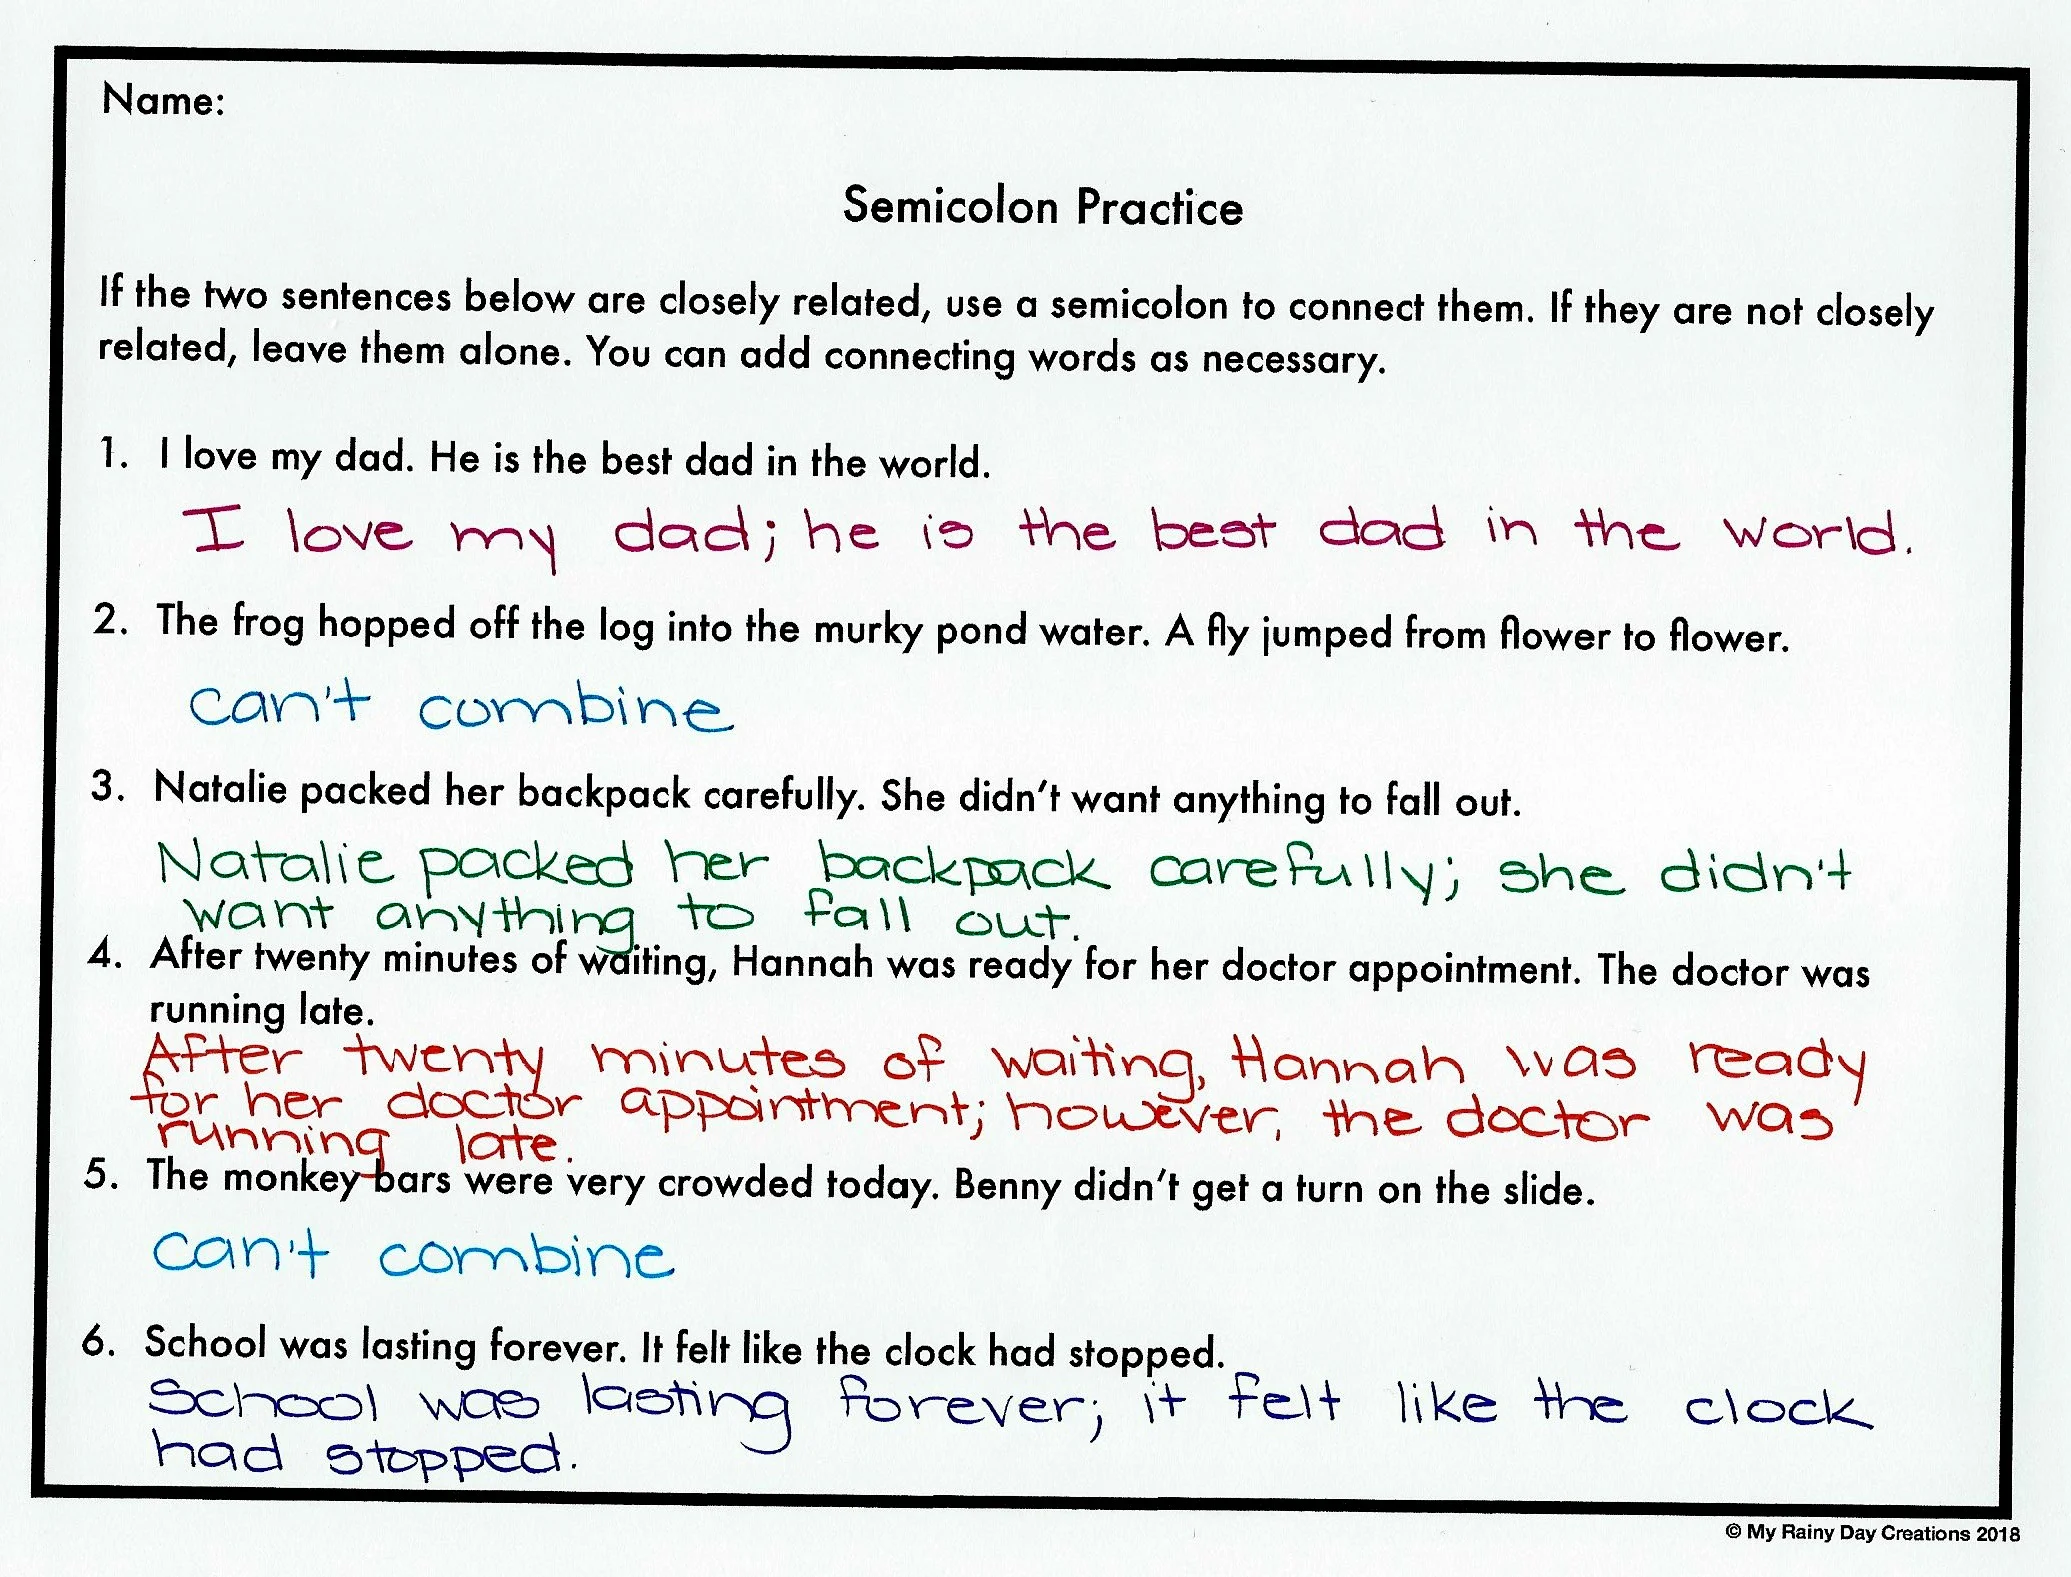 Name:
Semicolon Practice
If the two sentences below are closely related, use a semicolon to connect them. If they are not closely
related, leave them alone. You can add connecting words as necessary.
1. I love my dad. He is the best dad in the world.
I love my dad; he is the best dad in the world.
2. The frog hopped off the log into the murky pond water. A fly jumped from flower to flower.
can't combine
3. Natalie packed her backpack carefully. She didn't want anything to fall out.
Natalie packed her backpack carefully; she didn't
want anything to fall out.
4. After twenty minutes of waiting, Hannah was ready for her doctor appointment. The doctor was
running late.
After twenty minutes of waiting, Hannah was ready
for her doctor appointment; however, the doctor was
running late.
5. The monkey bars were very crowded today. Benny didn't get a turn on the slide.
can't combine
6. School was lasting forever. It felt like the clock had stopped.
School was lasting forever; it felt like the clock
had stopped.
© My Rainy Day Creations 2018